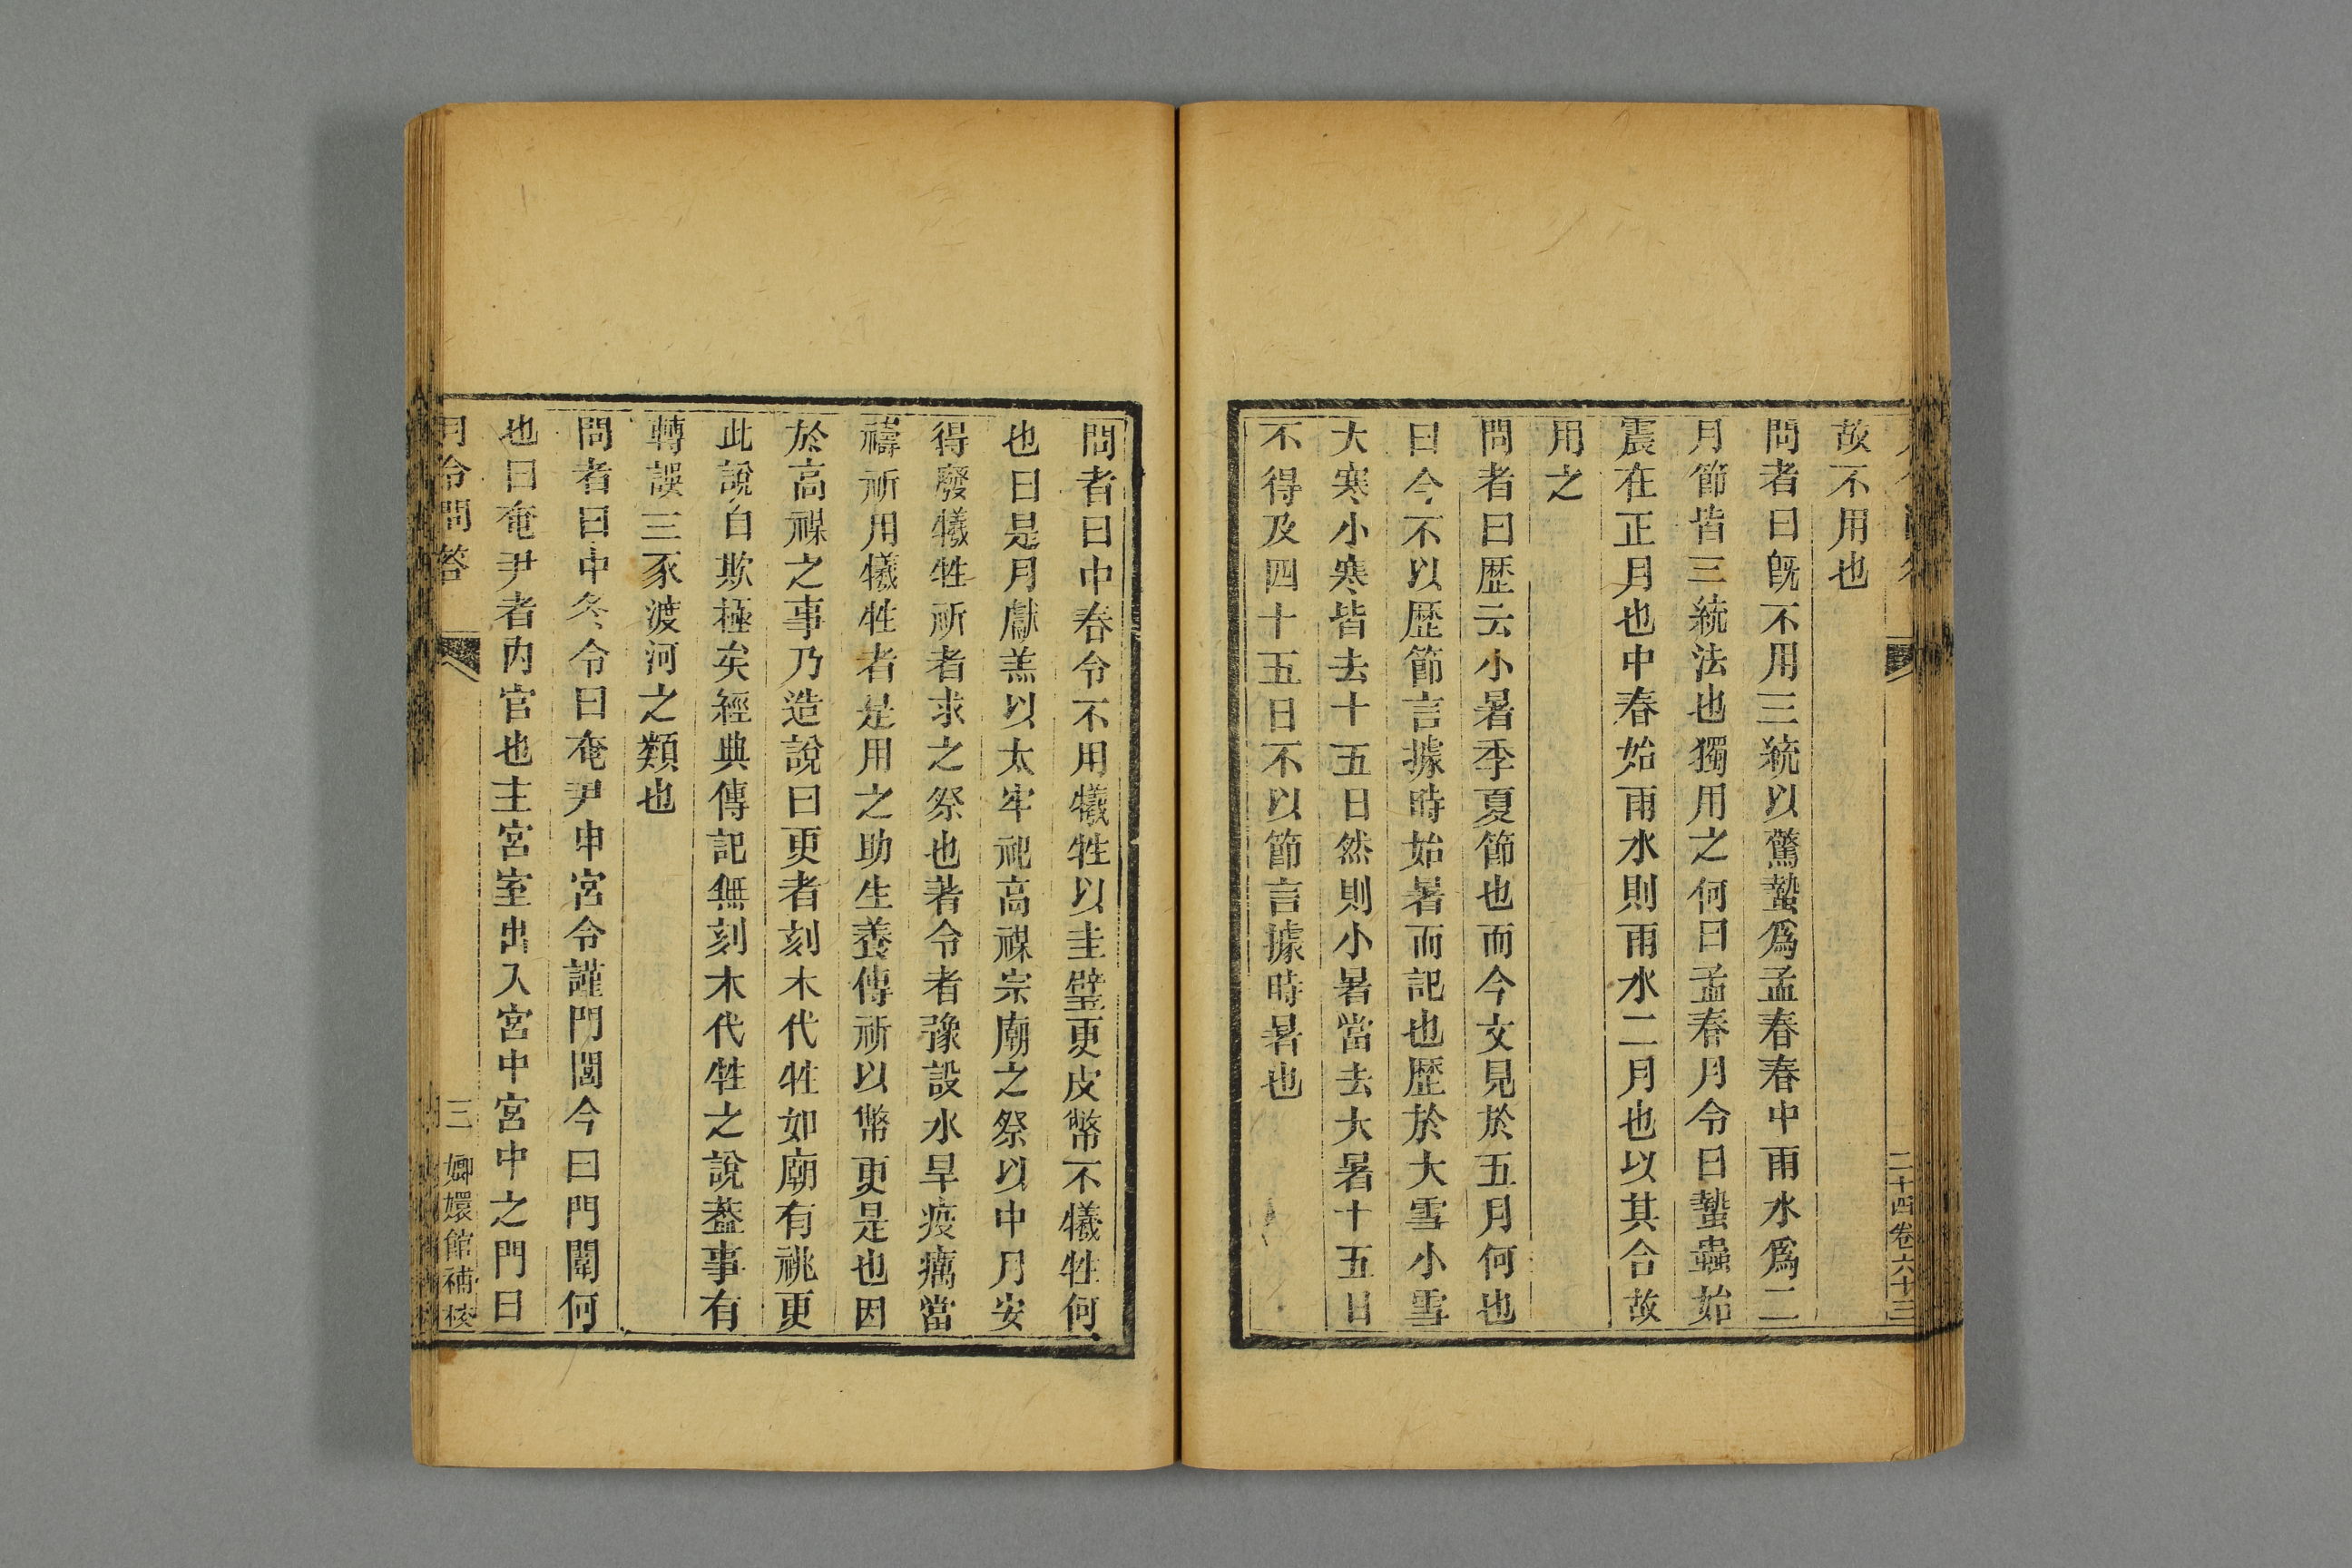 二十四卷六十三
故不用也
問者曰旣不用三統以驚蟄爲孟春春中雨水爲二
月節皆三統法也獨用之何曰孟春月令曰蟄蟲始
震在正月也中春始雨水則雨水二月也以其合故
用之
問者曰歴云小暑季夏節也而今文見於五月何也
曰今不以歴節言據時始暑而記也歴於大雪小雪
大寒小寒皆去十五日然則小暑當去大暑十五日
不得及四十五日不以節言據時暑也
問者曰中春令不用犧牲以圭璧更皮幣不犧牲何
也曰是月獻羔以太牢祀高禖宗廟之祭以中月安
得廢犧牲祈者求之祭也著令者豫設水旱疫癘當
禱祈用犧牲者是用之助生養傳祈以幣更是也因
於高禖之事乃造說曰更者刻木代牲如廟有祧更
此說自欺極矣經典傳記無刻木代牲之說葢事有
轉誤三豕渡河之類也
問者曰中冬令曰奄尹申宮令謹門閭今曰門闈何
也曰奄尹者內官也主宮室出入宮中宮中之門曰
月令問答
三
嫏嬛館補校